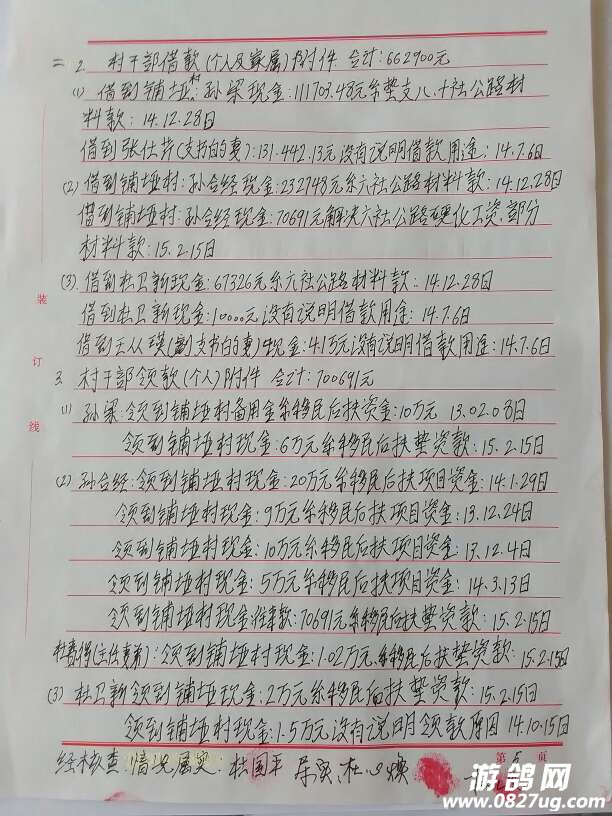 二 2. 村干部借款(个人及家属)附件 合计:662900元
(1) 借到铺垭村:孙梁现金:111703.48元系垫支八、十社公路材
料款:14.12.28日
借到张仕芹(支书的妻):131.442.13元没有说明借款用途:14.7.6日
(2) 借到铺垭村:孙合经现金:232748元系六社公路材料款:14.12.28日
借到铺垭村:孙合经现金:70691元解决六社公路硬化工资、部分
材料款:15.2.15日
(3) 借到杜卫新现金:67326元系六社公路材料款:14.12.28日
借到杜卫新现金:10000元没有说明借款用途:14.7.6日
借到王从瑛(副支书的妻)现金:4.1万元没有说明借款用途:14.7.6日
3. 村干部领款(个人)附件 合计:700691元
(1) 孙梁:领到铺垭村备用金系移民后扶资金:10万元 13.02.08日
领到铺垭村现金:6万元系移民后扶垫资款:15.2.15日
(2) 孙合经:领到铺垭村现金:20万元系移民后扶项目资金:14.1.29日
领到铺垭村现金:9万元系移民后扶项目资金:13.12.24日
领到铺垭村现金:10万元系移民后扶项目资金:13.12.4日
领到铺垭村现金:5万元系移民后扶项目资金:14.3.13日
领到铺垭村现金:70691元系移民后扶垫资款:15.2.15日
领到铺垭村现金:1.02万元系移民后扶垫资款:15.2.15日
(3) 杜卫新领到铺垭村现金:2万元系移民后扶垫资款:15.2.15日
领到铺垭村现金:1.5万元没有说明领款原因 14.10.15日
经核查:情况属实 杜国平
第 5 页
装
订
线
游鸽网
www.0827ug.com